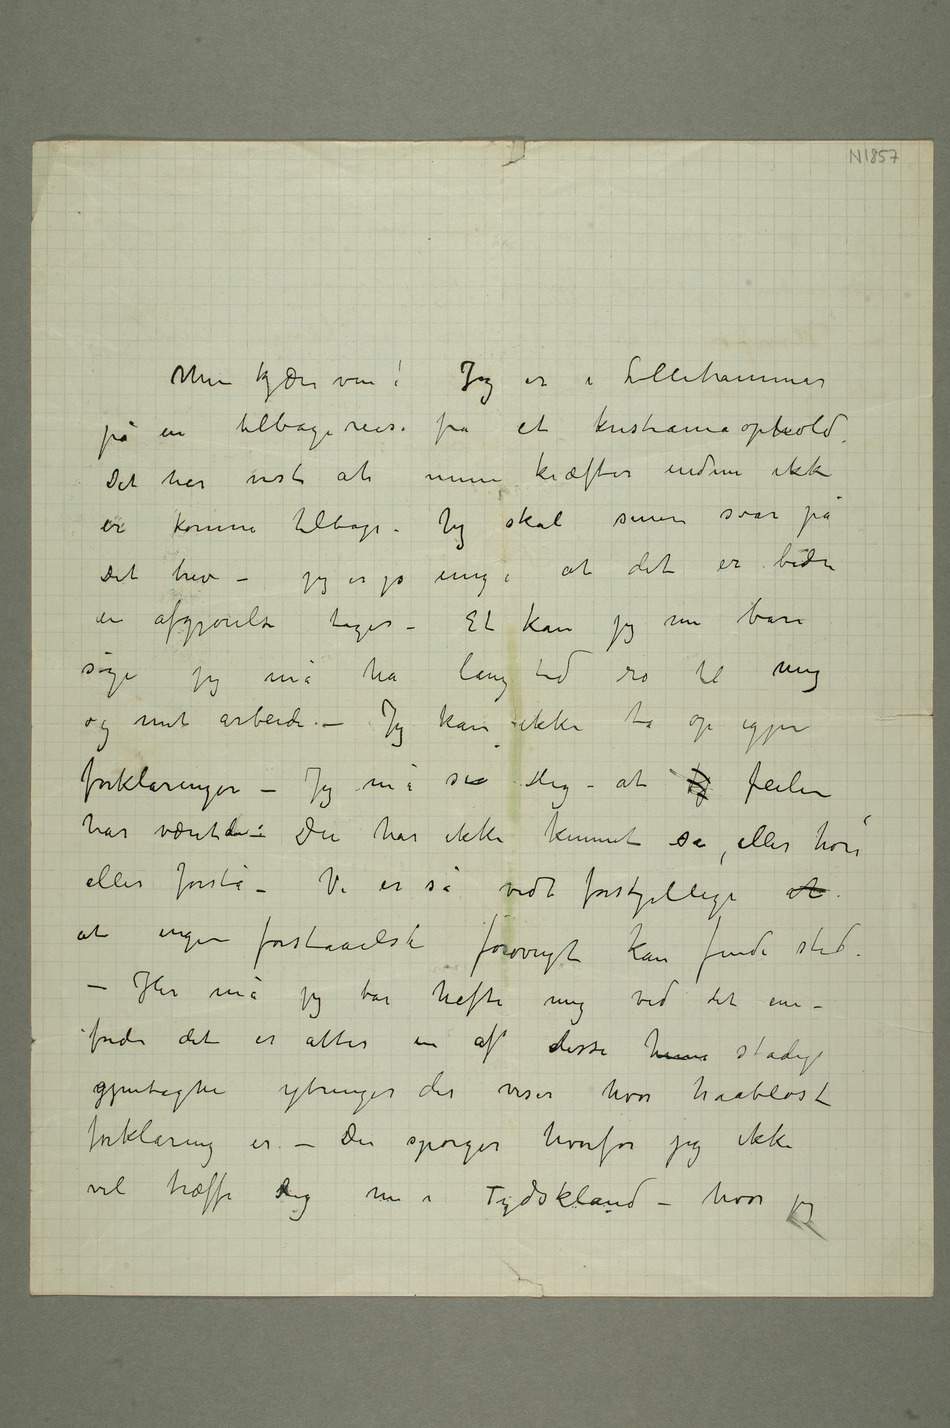 N1857
Min kjære ven! Jeg er i Lillehammer
på en tilbagereise fra et kristianiaophold.
Det har vist at mine kræfter endnu ikke
er komne tilbage. Jeg skal senere svar på
Dit brev – jeg er jo enig i at det er bedre
en afgjørelse tages – Et kan jeg nu bare
sige jeg må ha lang tid ro til mig
og mit arbeide. – Jeg kan ikke ta op igjen
forklaringer – Jeg må si Dig – at jeg feilen
har været den: Du har ikke kunnet se, eller høre
eller forstå – Vi er så vidt forskjellige at
at ingen forstaaelse forøvrigt kan finde sted.
– Her må jeg bare hefte mig ved det ene –
fordi det er atter en af disse stadige
gjentagne ytringer der viser hvor haabløst
forklaring er – Du spørger hvorfor jeg ikke
vil træffe Dig nu i Tydskland – hvor jeg